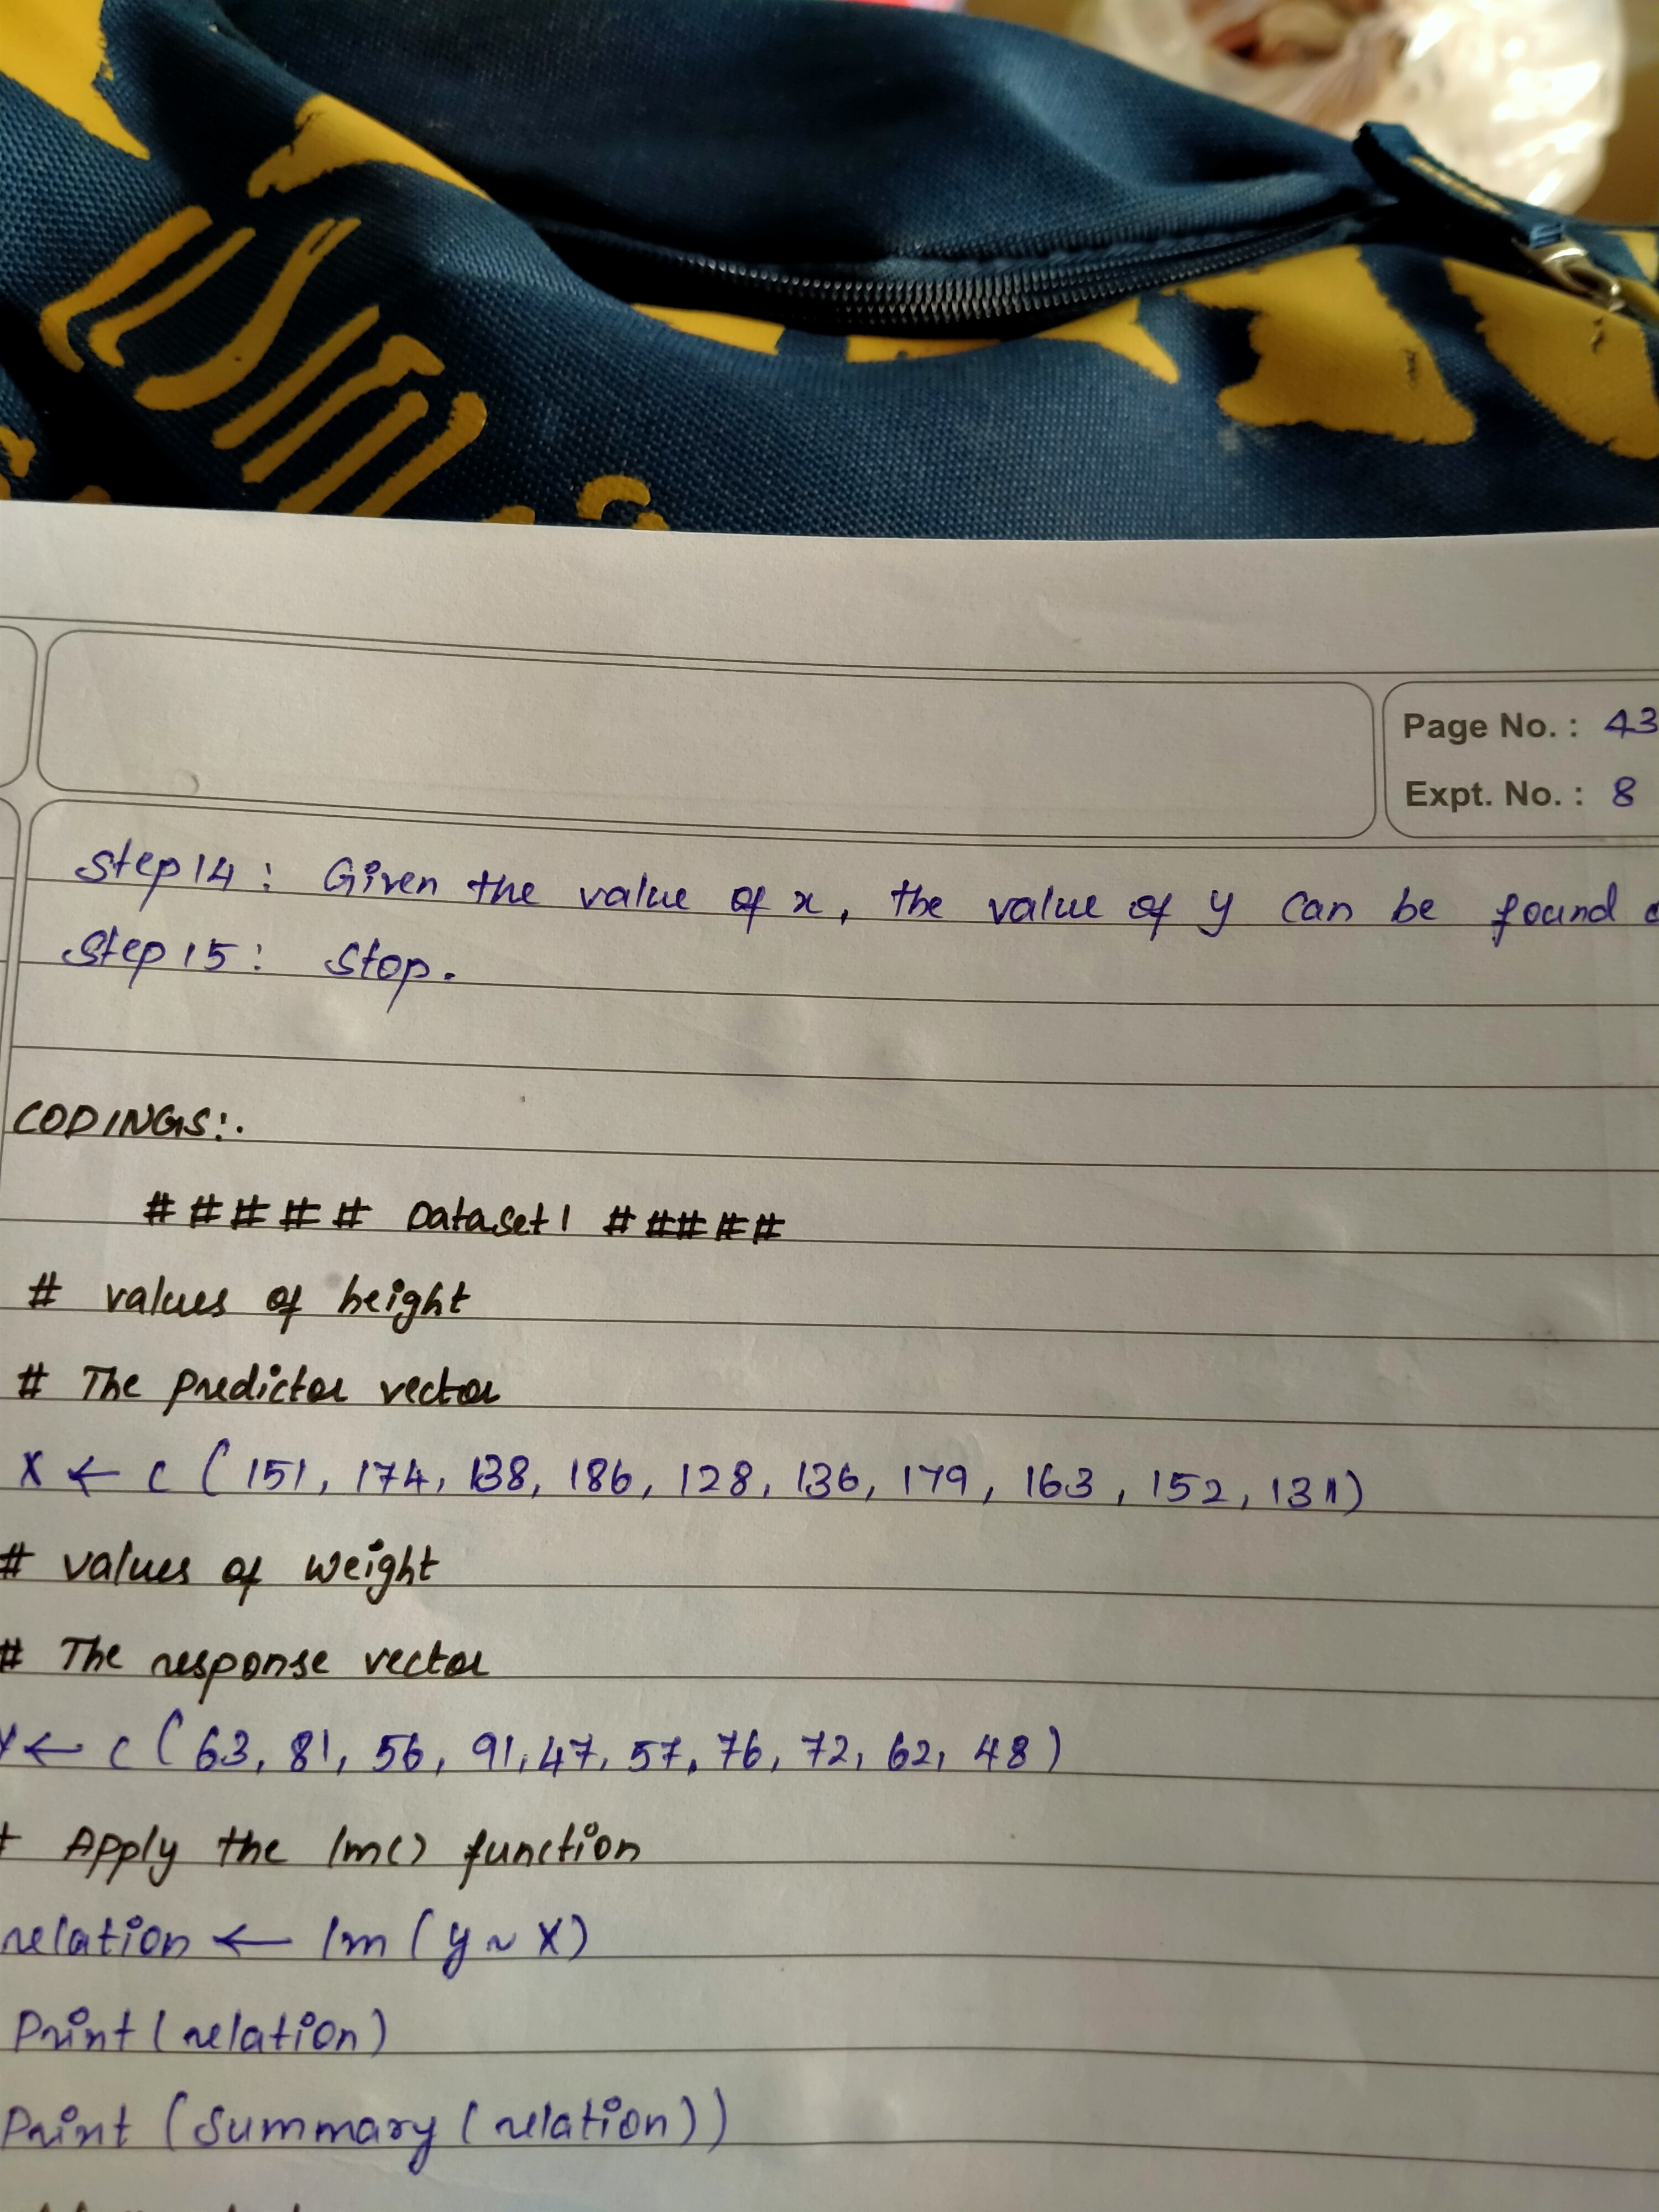 Page No. : 43
Expt. No. : 8
Step 14 : Given the value of x, the value of y can be found
Step 15 : Stop.
CODINGS:.
##### Dataset 1 #####
# values of height
# The predictor vector
X ← c (151, 174, 138, 186, 128, 136, 179, 163, 152, 131)
# values of weight
# The response vector
Y ← c (63, 81, 56, 91, 47, 57, 76, 72, 62, 48)
# Apply the lm() function
relation ← lm (y ~ X)
Print (relation)
Print (Summary (relation))